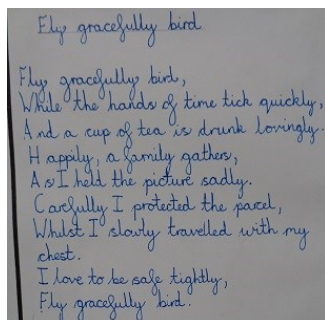 Fly gracefully bird
Fly gracefully bird,
While the hands of time tick quickly,
And a cup of tea is drunk lovingly.
Happily, a family gathers,
As I held the picture sadly.
Carefully I protected the parcel,
Whilst I slowly travelled with my
chest.
I love to be safe tightly,
Fly gracefully bird.